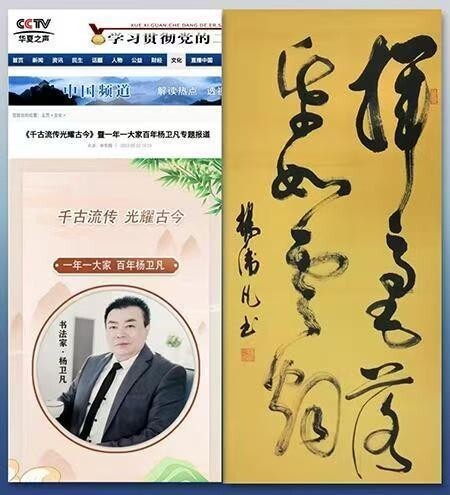 CCTV
华夏之声
XUE XI GUAN CHE DANG DE ER S
学习贯彻党的二
首页 新闻 资讯 民生 话题 人物 公益 财经 文化 直播中国
中国频道 解读热点 透视
《千古流传光耀古今》暨一年一大家百年杨卫凡专题报道
千古流传 光耀古今
一年一大家 百年杨卫凡
书法家·杨卫凡
揮毫落
帋如雲烟
楊衛凡书